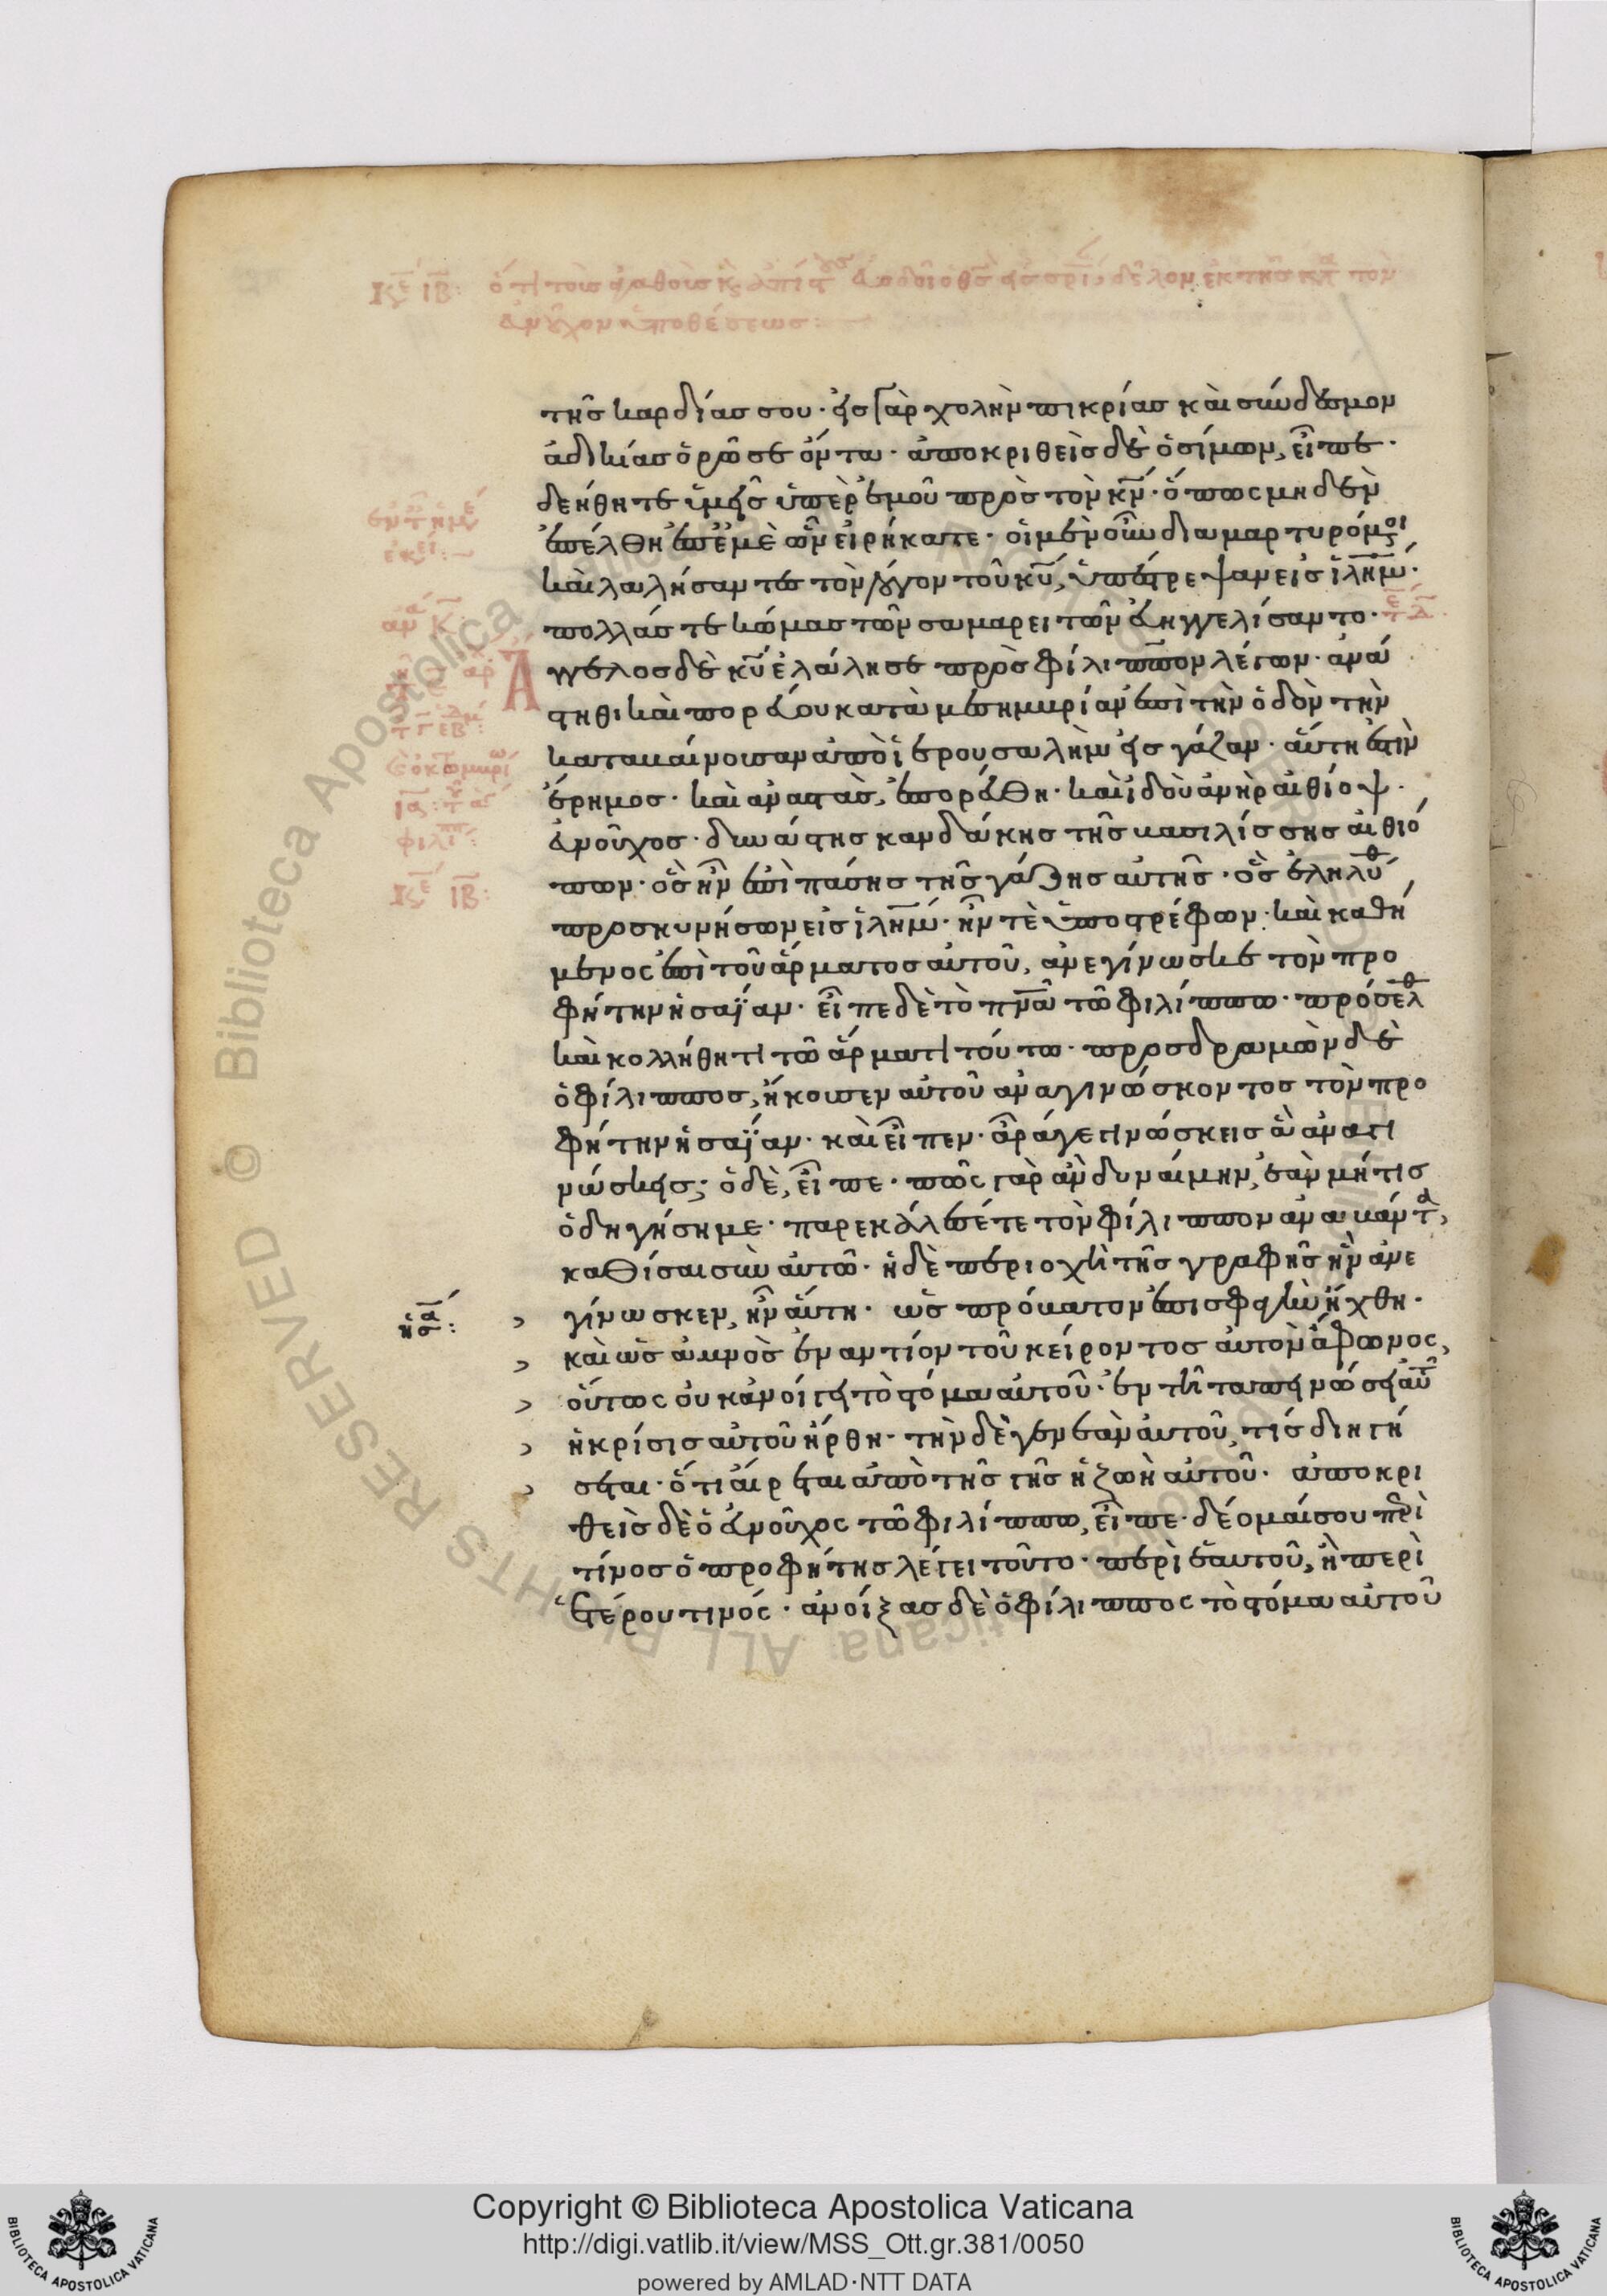 ὅτι τοῖς ἀγαθοῖς καὶ
εὐνοῦχον ὑποθέσεως:
τῆς καρδίας σου· εἰς γὰρ χολὴν πικρίας καὶ σύνδεσμον
ἀδικίας ὁρῶ σε ὄντα· ἀποκριθεὶς δὲ ὁ σίμων, εἶπε·
δεήθητε ὑμεῖς ὑπὲρ ἐμοῦ πρὸς τὸν κν̅· ὅπως μηδὲν
ἐπέλθη ἐπ ἐμὲ ὧν εἰρήκατε· οἱ μὲν οὖν διαμαρτυρόμοι
καὶ λαλήσαντες τὸν λόγον τοῦ κυ̅, ὑπέστρεψαν εἰς ἱλημ̅·
πολλάς τε κώμας τῶν σαμαρειτῶν εὐηγγελίσαντο·
Ἄγγελος δὲ κυ̅ ἐλάλησε πρὸς φίλιππον λέγων· ἀνά
στηθι καὶ πορεύου κατὰ μεσημβρίαν ἐπὶ τὴν ὁδὸν τὴν
καταβαίνουσαν ἀπὸ ἱερουσαλὴμ εἰς γάζαν· αὕτη ἐστὶν
ἔρημος· καὶ ἀναστὰς, ἐπορεύθη· καὶ ἰδοὺ ἀνὴρ αἰθίοψ·
εὐνοῦχος· δυνάστης κανδάκης τῆς βασιλίσσης αἰθιό
πων· ὃς ἦν ἐπὶ πάσης τῆς γάζης αὐτῆς· ὃς ἐληλύθ
προσκυνήσων εἰς ἱλημ̅· ἦν τε ὑποστρέφων· καὶ καθή
μενος ἐπὶ τοῦ ἅρματος αὐτοῦ, ἀνεγίνωσκε τὸν προ
φήτην ἡσαΐαν· εἶπε δὲ τὸ πνα̅ τῶ φιλίππω· πρόσελθ
καὶ κολλήθητι τῶ ἅρματι τούτω· προσδραμὼν δὲ
ὁ φίλιππος, ἤκουσεν αὐτοῦ ἀναγινώσκοντος τὸν προ
φήτην ἡσαΐαν· καὶ εἶπεν· ἆρά γε γινώσκεις ἃ ἀναγι
νώσκεις; ὁ δὲ, εἶπε· πῶς γὰρ ἂν δυναίμην, ἐὰν μή τις
ὁδηγήση με· παρεκάλεσέ τε τὸν φίλιππον ἀναβάντα,
καθίσαι σὺν αὐτῶ· ἡ δὲ περιοχὴ τῆς γραφῆς ἣν ἀνε
ἡσα: γίνωσκεν, ἦν αὕτη· ὡς πρόβατον ἐπὶ σφαγὴν ἤχθη·
καὶ ὡς ἀμνὸς ἐναντίον τοῦ κείροντος αὐτὸν ἄφωνος,
οὕτως οὐκ ἀνοίγει τὸ στόμα αὐτοῦ· ἐν τῆ ταπεινώσει αὐτοῦ
ἡ κρίσις αὐτοῦ ἤρθη· τὴν δὲ γενεὰν αὐτοῦ, τίς διηγή
σεται· ὅτι αἴρεται ἀπὸ τῆς γῆς ἡ ζωὴ αὐτοῦ· ἀποκρι
θεὶς δὲ ὁ εὐνοῦχος τῶ φιλίππω, εἶπε· δέομαί σου περὶ
τίνος ὁ προφήτης λέγει τοῦτο· περὶ ἑαυτοῦ, ἢ περὶ
ἑτέρου τινός· ἀνοίξας δὲ ὁ φίλιππος τὸ στόμα αὐτοῦ
Copyright © Biblioteca Apostolica Vaticana
http://digi.vatlib.it/view/MSS_Ott.gr.381/0050
powered by AMLAD·NTT DATA